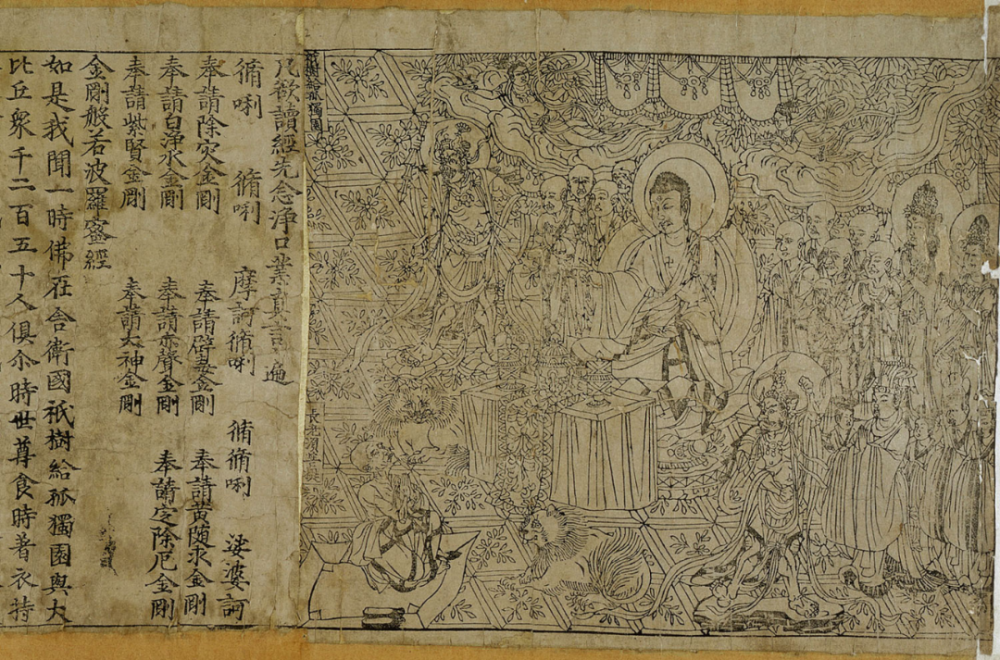 祇樹給孤獨園
長老須菩提
凡欲讀經先念淨口業真言一遍
脩唎 脩唎 摩訶脩唎 脩脩唎 娑婆訶
奉請除灾金剛 奉請辟毒金剛 奉請黃随求金剛
奉請白淨水金剛 奉請赤聲金剛 奉請定除厄金剛
奉請紫賢金剛 奉請大神金剛
金剛般若波羅蜜經
如是我聞一時佛在舍衛國祇樹給孤獨園與大
比丘衆千二百五十人俱尒時世尊食時著衣持